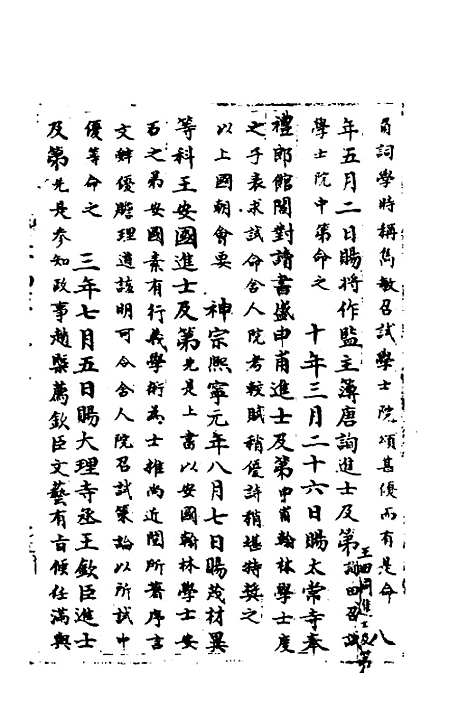 甫詞學時稱雋敏召試學士院頌甚優而有是命
年五月二日賜將作監主簿唐詢進士及第詢田召試
學士院中第命之　　十年三月二十六日賜太常寺奉
禮郎館閣對讀書盛申甫進士及第申甫翰林學士度
之子表求試命舍人院考較賦稍優詩稍堪特獎之
以上國朝會要　神宗熙寧元年八月七日賜茂材異
等科王安國進士及第先是上書以安國翰林學士安
石之弟安國素有行義學術為士推尚近閱所著序言
文辨優贍理道該明可令舍人院召試策論以所試中
優等命之　　三年七月五日賜大理寺丞王欽臣進士
及第先是參知政事趙槩薦欽臣文藝有旨候任滿與
八